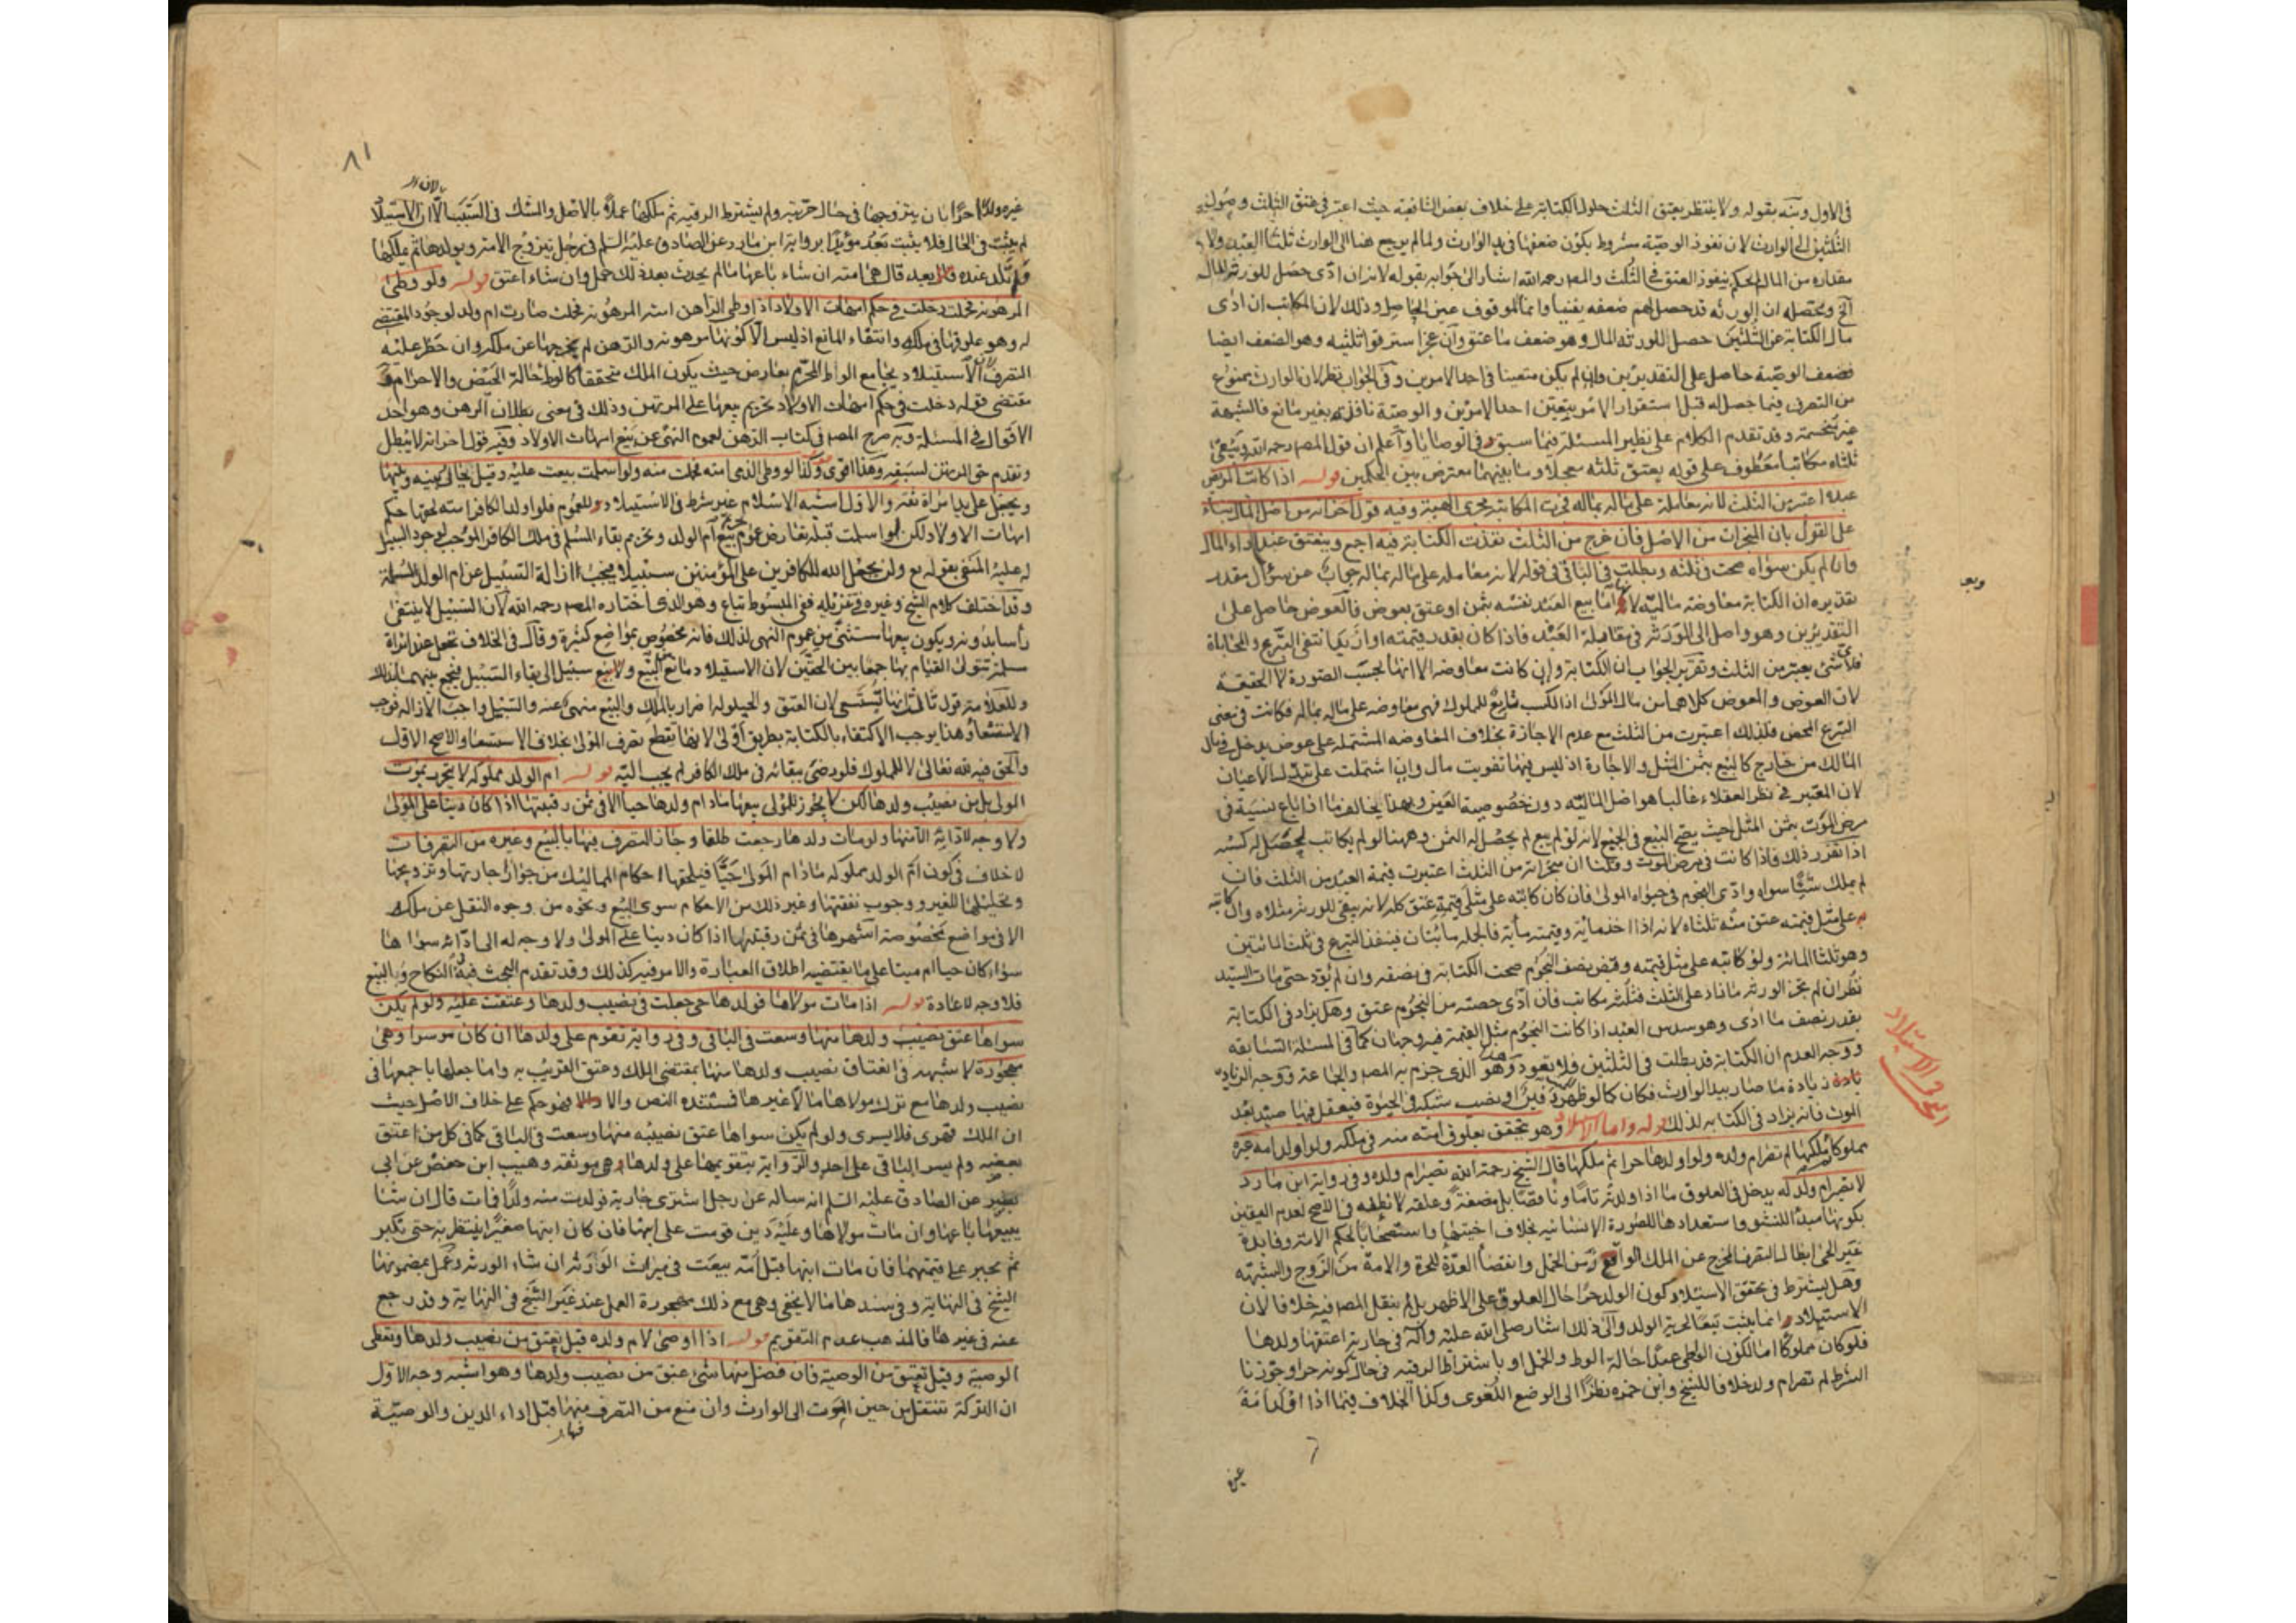 في الاول ونبه بقوله ولا ينتظر بعتق الثلث حلول الكتابة على خلاف بعض الشافعية حيث اعتبر في عتق الثلث وصول
الثلثين الى الوارث لان نفوذ الوصية مشروط بكون ضعفها في يد الوارث ولما لم يرجع هنا الى الوارث ثلثا العبد ولا
مقداره من المال لم يحكم بنفوذ العتق في الثلث والمصنف رحمه الله اشار الى جوابه بقوله لانه ان ادى حصل للورثة المال
الخ ومحصله ان الورثة قد حصل لهم ضعفه يقينا وانما الموقوف عين الحاصل وذلك لان المكاتب ان ادى
مال الكتابة عن الثلثين حصل للورثة المال وهو ضعف ما عتق وان عجز استرقوا ثلثيه وهو الضعف ايضا
فضعف الوصية حاصل على التقديرين وان لم يكن متعينا في احد الامرين وفي الجواب نظر لان الوارث ممنوع
من التصرف فيما حصل له قبل استقرار الامر بتعين احد الامرين والوصية نافذة بغير مانع فالشبهة
غير منحسمة وقد تقدم الكلام على نظير المسئلة فيما سبق وفي الوصايا واعلم ان قول المصنف رحمه الله ويبقى
ثلثاه مكاتبا معطوف على قوله يعتق ثلثه معجلا وما بينهما معترض بين الحكمين قوله اذا كاتب المريض
عبده اعتبر من الثلث لانه معاملة على ماله بماله فجرت المكاتبة مجرى الهبة وفيه قول اخر انه من اصل المال بناء
على القول بان المنجزات من الاصل فان خرج من الثلث نفذت الكتابة فيه اجمع وينعتق عند اداء المال
وان لم يكن سواه صحت في ثلثه وبطلت في الباقي في قوله لانه معاملة على ماله بماله جواب عن سؤال مقدر
تقديره ان الكتابة معاوضة مالية لانها اما بيع العبد نفسه بثمن او عتق بعوض فالعوض حاصل على
التقديرين وهو واصل الى الورثة في مقابلة العبد فاذا كان بقدر قيمته او ازيد انتفى التبرع والمحاباة
فلا شئ يعتبر من الثلث وتقرير الجواب ان الكتابة وان كانت معاوضة الا انها بحسب الصورة لا الحقيقة
لان العوض والمعوض كلاهما من مال المولى اذ الكسب تابع للمملوك فهي معاوضة على ماله بماله فكانت في معنى
التبرع المحض فلذلك اعتبرت من الثلث مع عدم الاجازة بخلاف المعاوضة المشتملة على عوض يدخل في مال
المالك من خارج كالبيع بثمن المثل والاجارة اذ ليس فيها تفويت مال وان اشتملت على تبديل الاعيان
لان المعتبر في نظر العقلاء غالبا هو اصل المالية دون خصوصية العين وبهذا يخالف ما اذا باع نسيئة في
مرض الموت بثمن المثل حيث يصح البيع في الجميع لانه لو لم يبع لم يحصل له الثمن وههنا لو لم يكاتب لحصل له كسبه
اذا تقرر ذلك فاذا كانت في مرض الموت وقلنا ان منجزاته من الثلث اعتبرت قيمة العبد من الثلث فان
لم يملك شيئا سواه وادى النجوم في حيوة المولى فان كان كاتبه على مثلي قيمته عتق كله لانه يبقى للورثة مثلاه وان كاتبه
على مثل قيمته عتق منه ثلثاه لانه اذا اخذ مائة وقيمته مائة فالجملة مائتان فينفذ التبرع في ثلث المائتين
وهو ثلثا المائة ولو كاتبه على مثل قيمته وقبض نصف النجوم صحت الكتابة في نصفه وان لم يؤد حتى مات السيد
نظر ان لم يجز الورثة ما زاد على الثلث فثلثه مكاتب فان ادى حصته من النجوم عتق وهل يزاد في الكتابة
بقدر نصف ما ادى وهو سدس العبد اذا كانت النجوم مثل القيمة فيه وجهان كما في المسئلة السابقة
ووجه العدم ان الكتابة قد بطلت في الثلثين فلا يعود وهذا هو الذي جزم به المصنف والجماعة ووجه الزيادة
زيادة ما صار بيد الوارث فكان كما لو ظهر دفين او نصب شبكة في الحيوة فيعقل فيها صيد بعد
الموت فانه يزاد في الكتابة لذلك قوله واما الاستيلاد وهو يتحقق بعلوق امته منه في ملكه ولو اولد امة غيره
مملوكا ثم ملكها لم تصر ام ولده ولو اولدها حرا ثم ملكها قال الشيخ رحمه الله تصير ام ولده وفي رواية ابن مارد
لا تصير ام ولد له يدخل في العلوق ما اذا ولدته تاما وناقصا بل مضغة وعلقة لا نطفة في الاصح لعدم اليقين
بكونها مبدأ للنشو واستعدادها للصورة الانسانية بخلاف اختيها واستصحابا لحكم الامة وفايدة
غير الحي ابطال التصرف المخرج عن الملك الواقع زمن الحمل وانقضا العدة للحرة والامة من الزوج والشبهة
وهل يشترط في تحقق الاستيلاد كون الولد حرا حال العلوق على الاظهر بل لم ينقل المصنف فيه خلافا لان
الاستيلاد انما يثبت تبعا لحرية الولد والى ذلك اشار صلى الله عليه وآله في جارية اعتقها ولدها
فلو كان مملوكا اما لكون الواطي عبدا حالة الوط والحمل او باشتراط الرقية في حال كونه حرا وجوزنا
الشرط لم تصر ام ولد خلافا للشيخ وابن حمزة نظرا الى الوضع اللغوي وكذا الخلاف فيما اذا اولد امة
غيره
الحق في الاستيلاد
٨١
غيره ولدا حرا بان يتزوجها في حال حريته ولم يشترط الرقية ثم ملكها عملا بالاصل والشك في السبب لان الاستيلاد
لم يثبت في الحال فلا يثبت بعد مؤيدا برواية ابن مارد عن الصادق عليه السلم في رجل تزوج الامة ويولدها ثم يملكها
ولم تلد عنده بعد قال هي امته ان شاء باعها ما لم يحدث بعد ذلك حمل وان شاء اعتق قوله ولو وطئ
المرهونة فحملت دخلت في حكم امهات الاولاد اذا وطى الراهن امته المرهونة فحملت صارت ام ولد لوجود المقتضي
له وهو علوقها في ملكه وانتفاء المانع اذ ليس الا كونها مرهونة والرهن لم يخرجها عن ملكه وان حظر عليه
التصرف لان الاستيلاد يجامع الوط المحرم بعارض حيث يكون الملك متحققا كالوط حالة الحيض والاحرام و
مقتضى قوله دخلت في حكم امهات الاولاد تحريم بيعها على المرتهن وذلك في معنى بطلان الرهن وهو احد
الاقوال في المسئلة وبه صرح المصنف في كتاب الرهن لعموم النهي عن بيع امهات الاولاد وفيه قول اخر انه لا يبطل
وتقدم حق المرتهن لسبقه وهذا اقوى وكذا لو وطى الذمي امته فحملت منه ولو اسلمت بيعت عليه وقيل يحال بينه وبينها
ويجعل على يد امراة ثقة والاول اشبه الاسلام غير شرط في الاستيلاد للعموم فلو اولد الكافر امته لحقها حكم
امهات الاولاد لكن لو اسلمت قبله تعارض عموم تحريم بيع ام الولد وتحريم بقاء المسلم في ملك الكافر الموجب لوجود السبيل
له عليه المنفي بقوله تع ولن يجعل الله للكافرين على المؤمنين سبيلا فيجب ازالة السبيل عن ام الولد المسلمة
وقد اختلف كلام الشيخ وغيره في تنزيله ففي المبسوط تباع وهو الذي اختاره المصنف رحمه الله لان السبيل لا ينتفي
رأسا بدونه ويكون بيعها مستثنى من عموم النهي لذلك فانه مخصوص بمواضع كثيرة وقال في الخلاف تجعل عند امراة
مسلمة تتولى القيام بها جمعا بين الحقين لان الاستيلاد مانع من البيع ولا سبيل الى بقاء السبيل فيجمع بينهما بذلك
وللعلامة قول ثالث انها تستسعى لان العتق والحيلولة اضرار بالملك والبيع منهي عنه والسبيل واجب الازالة فوجب
الاستسعاء وهذا يوجب الاكتفاء بالكتابة بطريق اولى لانها تقطع تصرف المولى بخلاف الاستسعاء والاصح الاول
والحق فيه لله تعالى لا للمملوك فلو رضي ببقائه في ملك الكافر لم يجب اليه قوله ام الولد مملوكة لا تتحرر بموت
المولى بل من نصيب ولدها لكن لا يجوز للمولى بيعها مادام ولدها حيا الا في ثمن رقبتها اذا كان دينا على المولى
ولا وجه لادائه الا منها ولو مات ولدها رجعت طلقا وجاز التصرف فيها بالبيع وغيره من التصرفات
لا خلاف في كون ام الولد مملوكة ما دام المولى حيا فيلحقها احكام المماليك من جواز اجارتها وتزويجها
وتحليلها للغير ووجوب نفقتها وغير ذلك من الاحكام سوى البيع ونحوه من وجوه النقل عن ملكه
الا في مواضع مخصوصة اشهرها في ثمن رقبتها اذا كان دينا على المولى ولا وجه له الى ادائه سواها
سواء كان حيا ام ميتا على ما يقتضيه اطلاق العبارة والامر فيه كذلك وقد تقدم البحث فيه في النكاح وبالبيع
فلا وجه للاعادة قوله اذا مات مولاها فولدها حي جعلت في نصيب ولدها وعتقت عليه ولو لم يكن
سواها عتق نصيب ولدها منها وسعت في الباقي وفي رواية تقوم على ولدها ان كان موسرا وهي
مهجورة لا شبهة في انعتاق نصيب ولدها منها بمقتضى الملك وعتق القريب به واما جعلها باجمعها في
نصيب ولدها مع ترك مولاها مالا غيرها فمستنده النص والا فهو حكم على خلاف الاصل حيث
ان الملك قهري فلا يسرى ولو لم يكن سواها عتق نصيبه منها وسعت في الباقي كما في كل من اعتق
بعضه ولم يسر الباقي على احد والرواية بتقويمها على ولدها هي موثقة وهيب ابن حفص عن ابي
بصير عن الصادق عليه السلم انه ساله عن رجل اشترى جارية فولدت منه ولدا فمات قال ان شا
يبيعها باعها وان مات مولاها وعليه دين قومت على ابنها فان كان ابنها صغيرا ينتظر به حتى يكبر
ثم يجبر على قيمتها فان مات ابنها قبل امه بيعت في ميراث الورثة ان شاء الورثة وعمل بمضمونها
الشيخ في النهاية وفي سندها ما لا يخفى وهي مع ذلك مهجورة العمل عند غير الشيخ في النهاية وقد رجع
عنه في غيرها فالمذهب عدم التقويم قوله اذا اوصى لام ولده قيل يعتق من نصيب ولدها ويعطى
الوصية وقيل تعتق من الوصية فان فضل منها شئ عتق من نصيب ولدها وهو اشبه وجه الاول
ان التركة تنتقل من حين الموت الى الوارث وان منع من التصرف فيها قبل اداء الدين والوصية